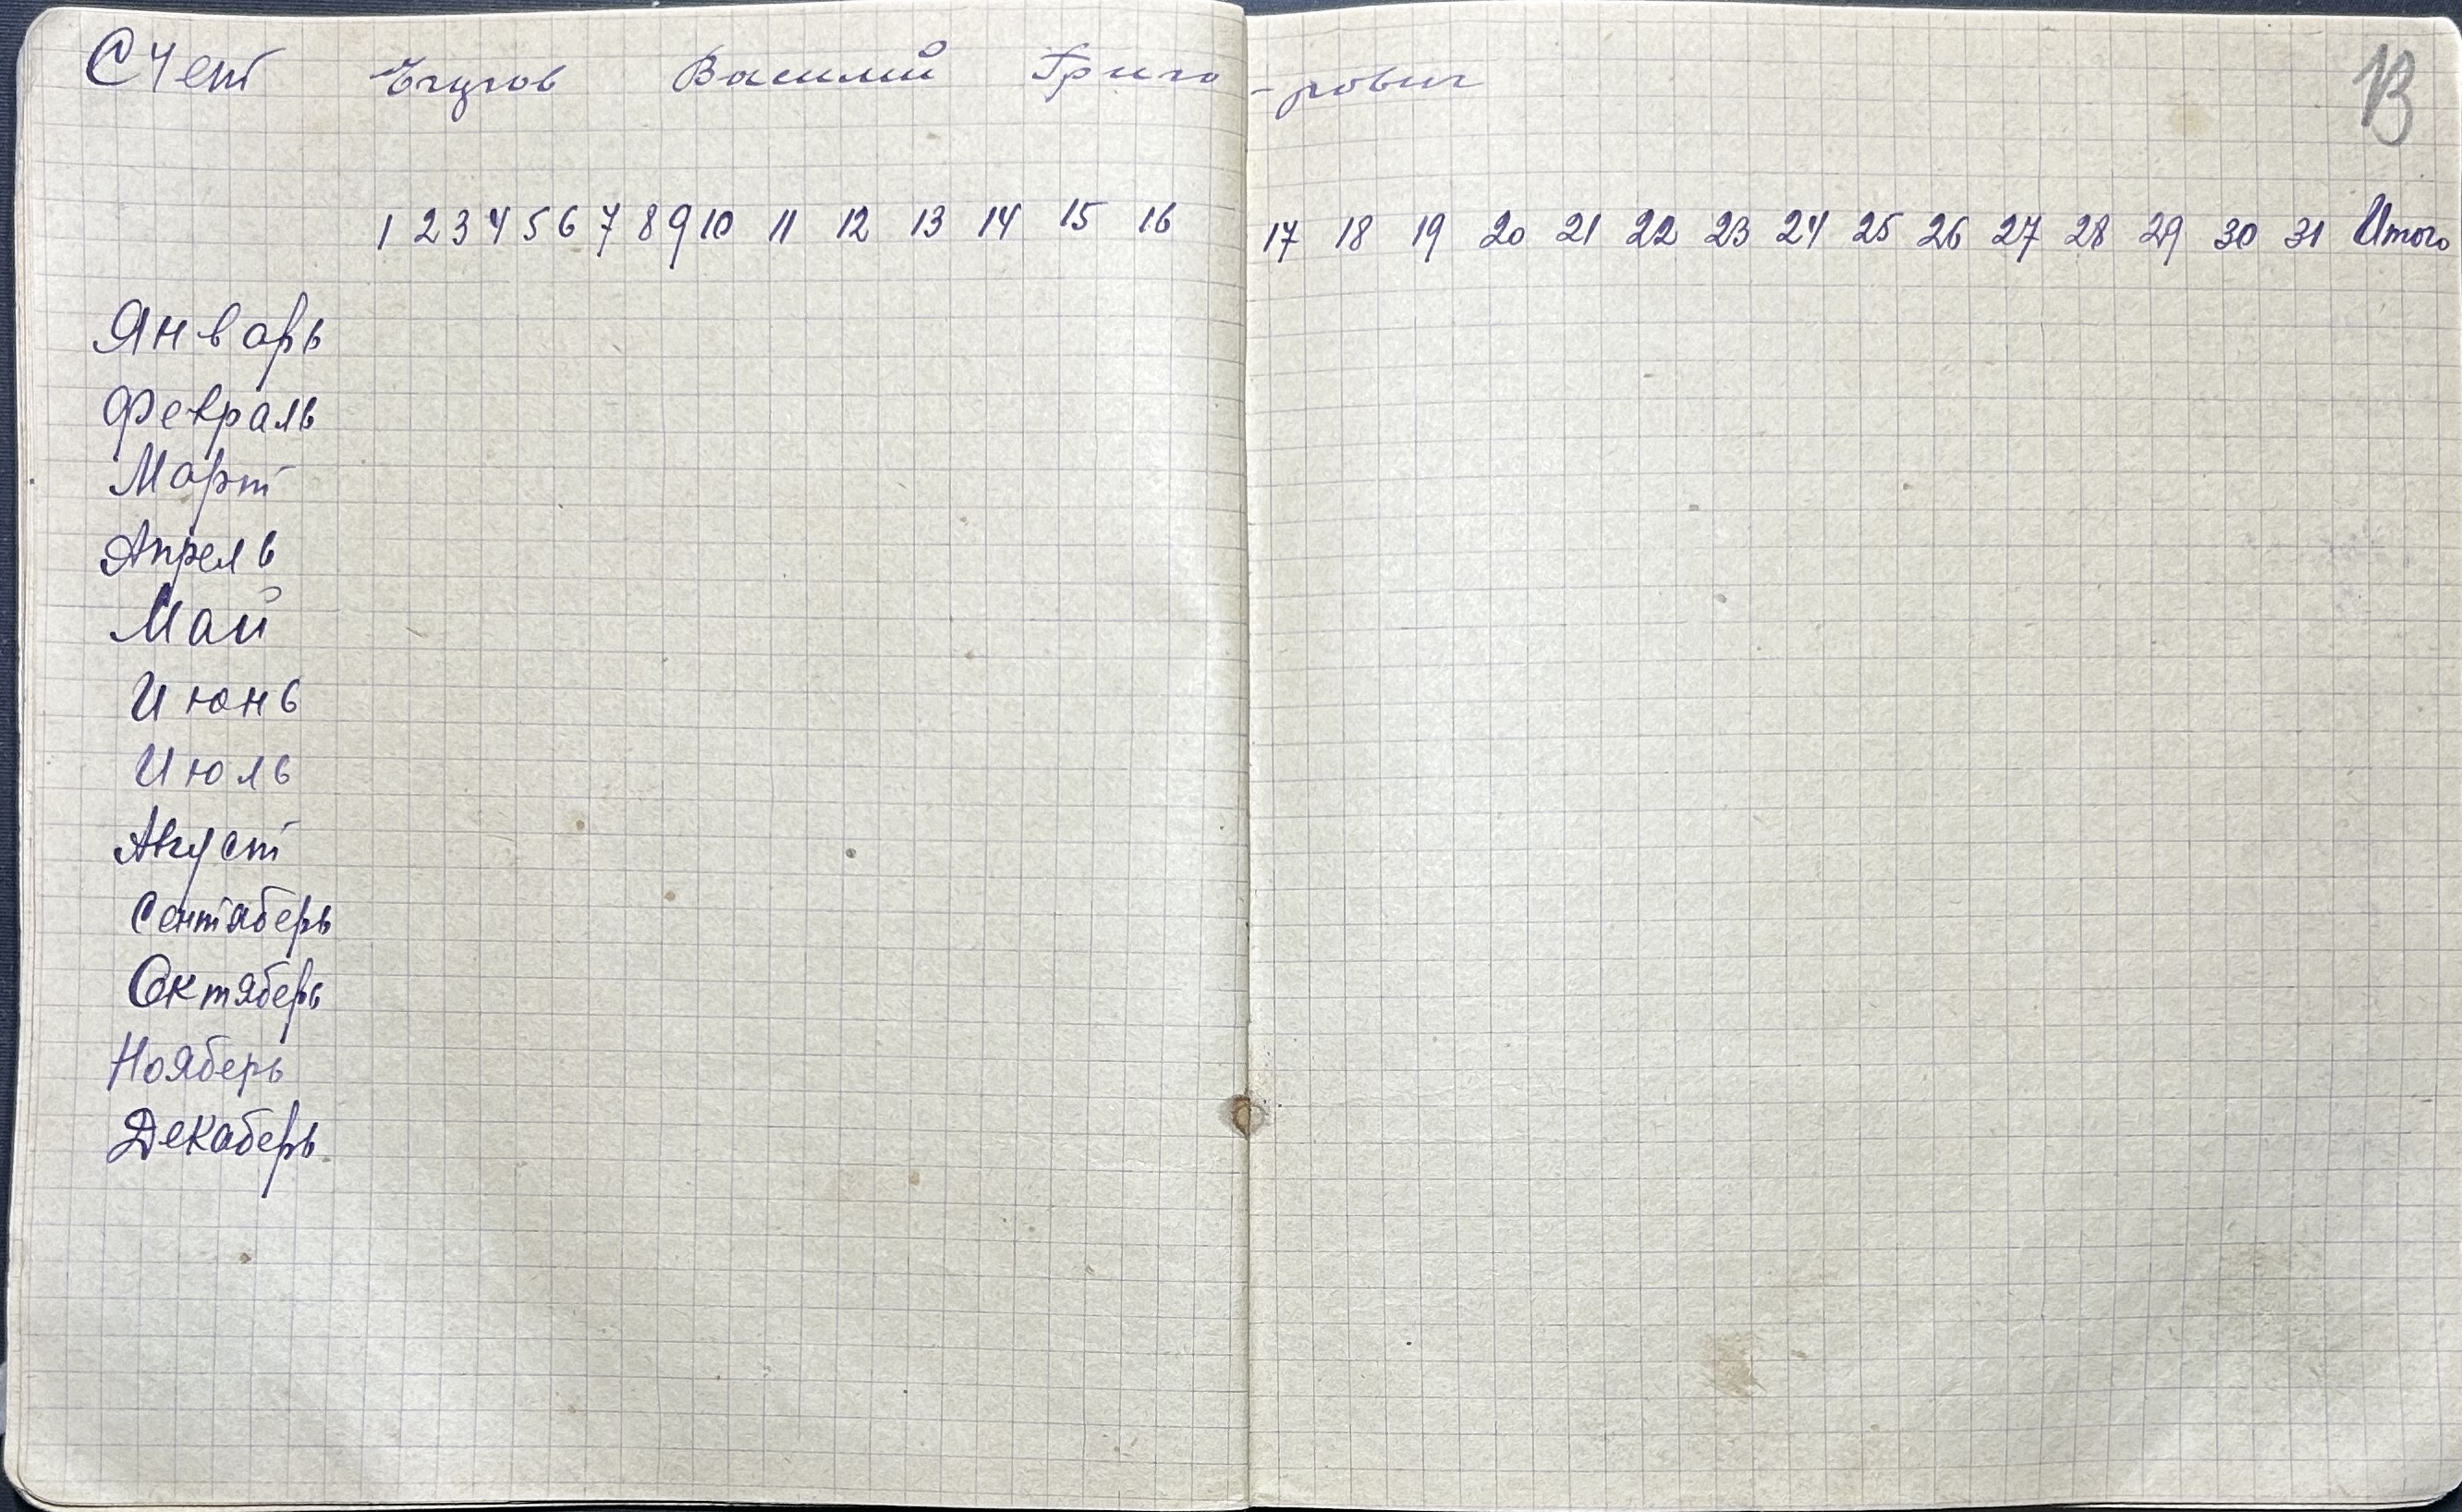 Счет Василий Григо-рович
13
1 2 3 4 5 6 7 8 9 10 11 12 13 14 15 16 17 18 19 20 21 22 23 24 25 26 27 28 29 30 31 Итого
Январь
Февраль
Март
Апрель
Май
Июнь
Июль
Август
Сентяберь
Октяберь
Нояберь
Декаберь